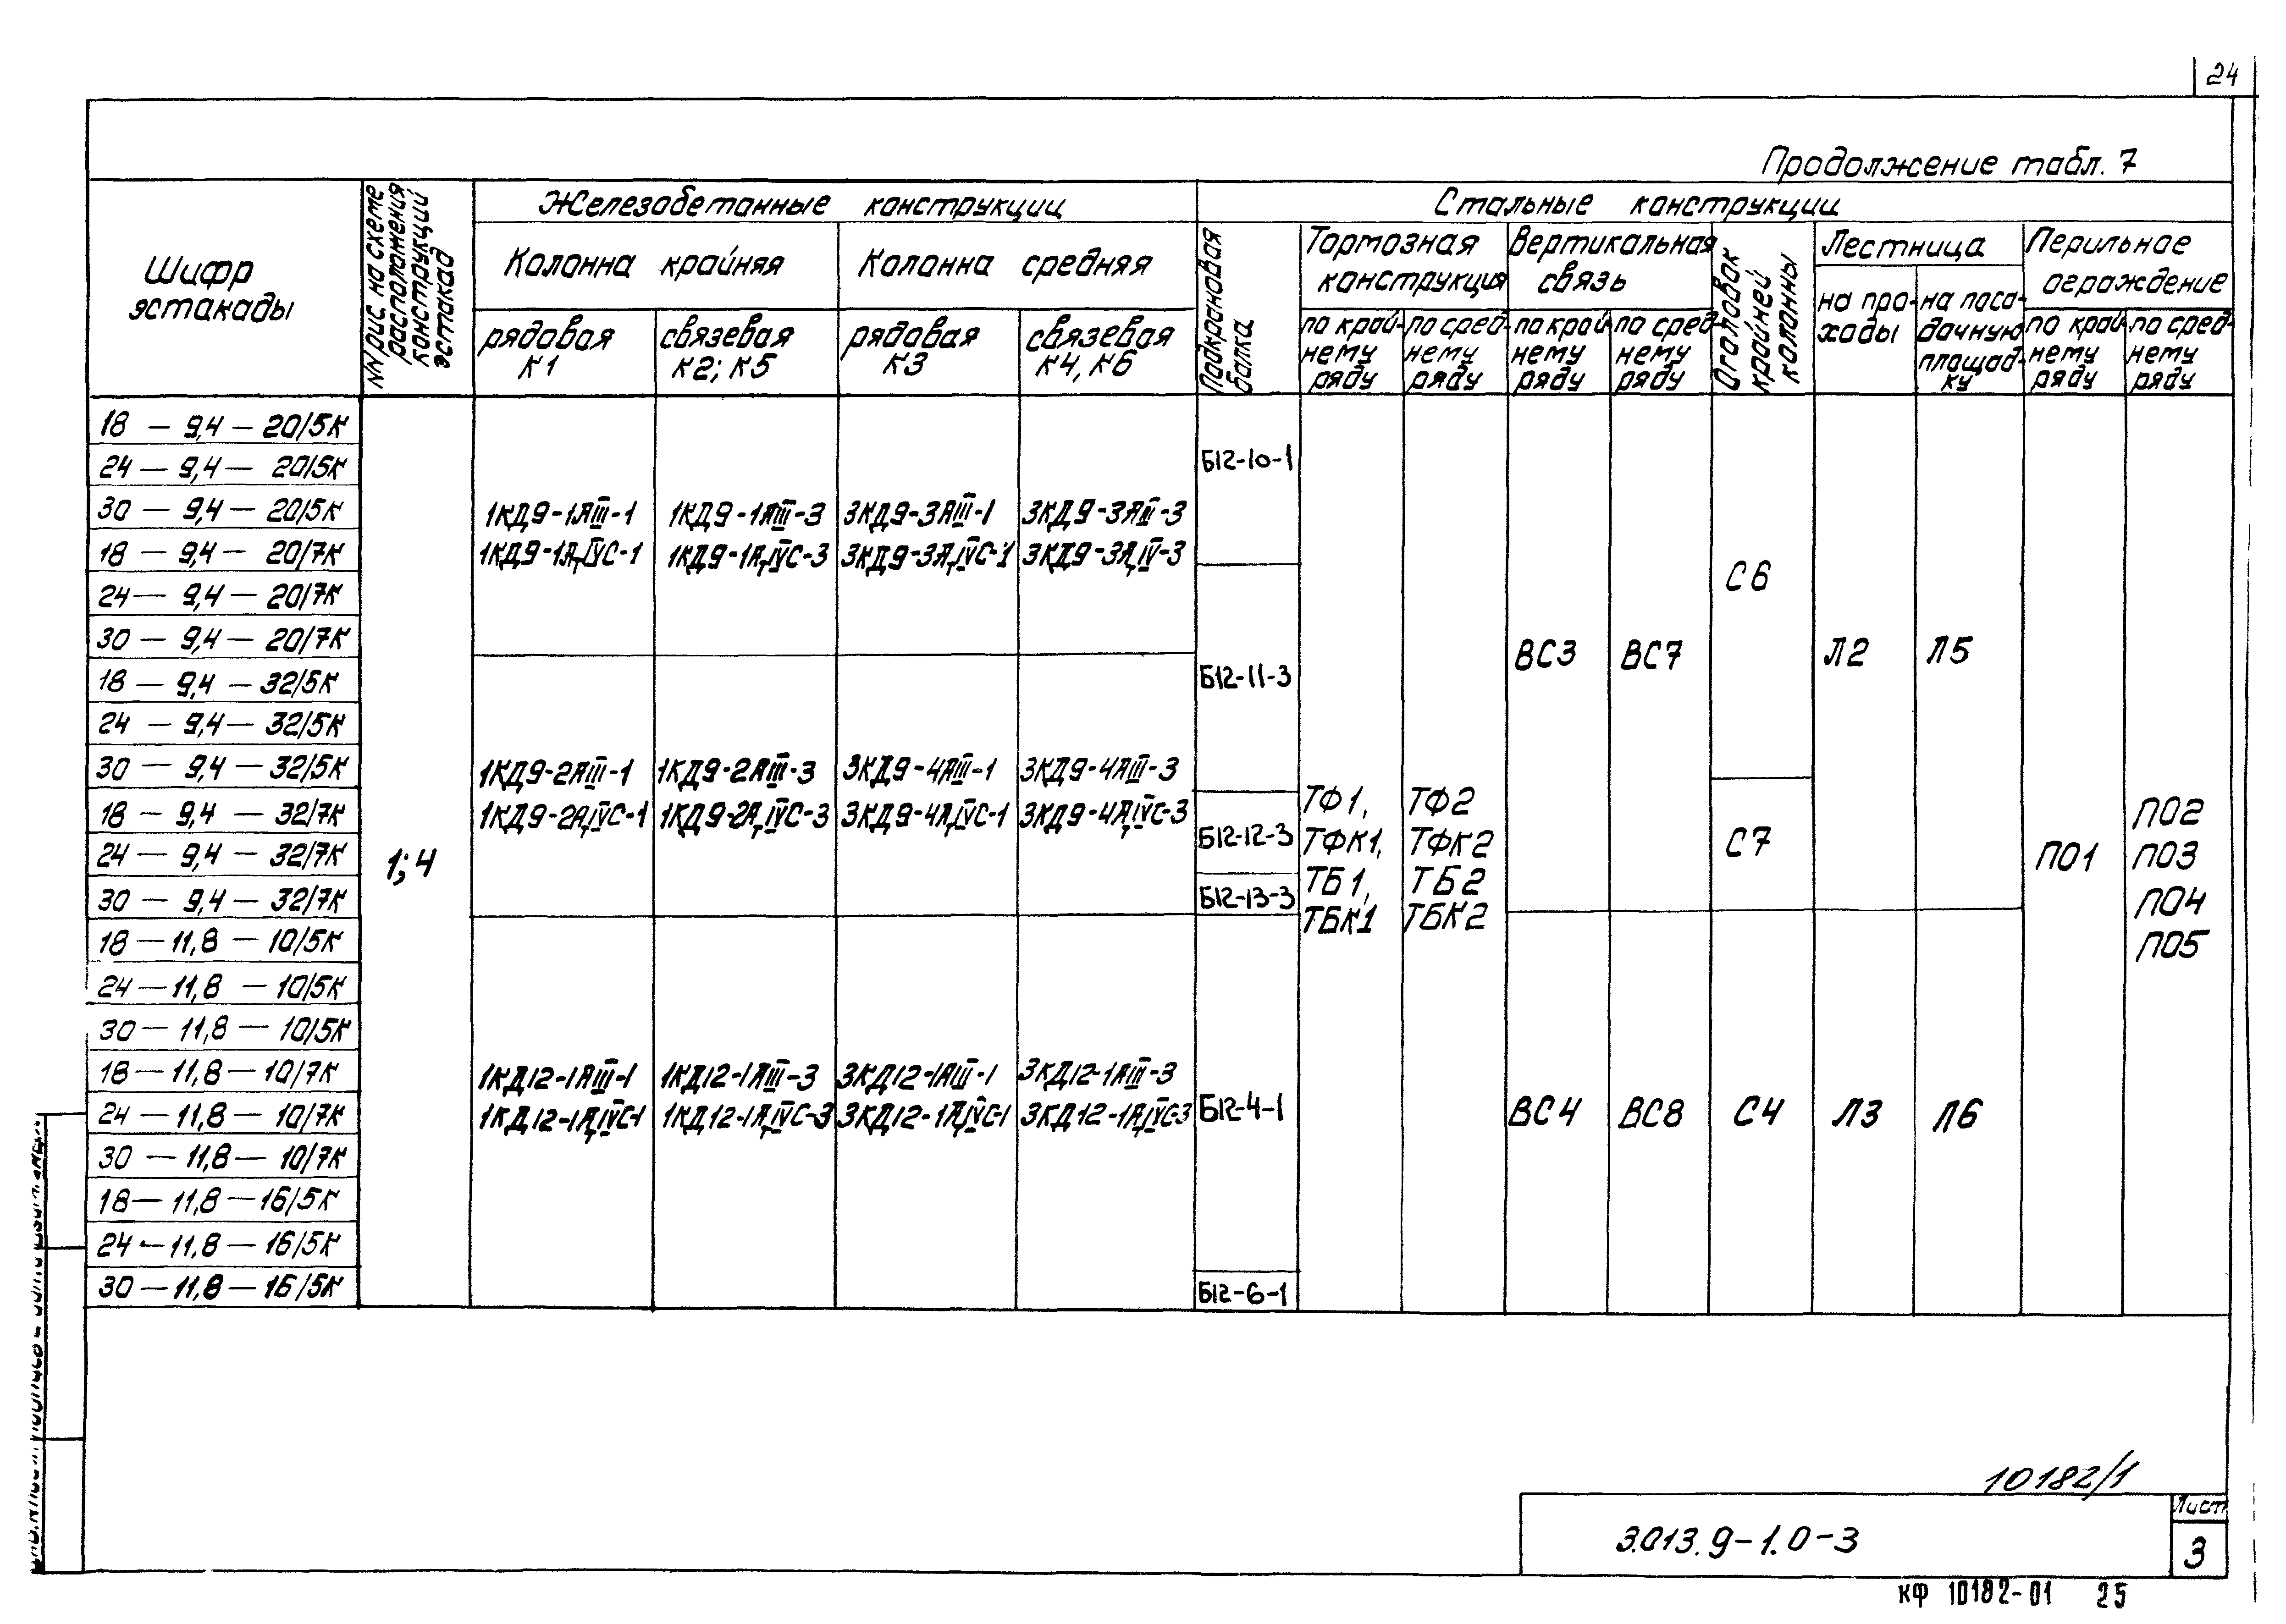 24
Продолжение табл. 7
Шифр
эстакады
NN рис. на схеме
расположения
конструкций
эстакад
Железобетонные конструкции
Стальные конструкции
Колонна крайняя
Колонна средняя
рядовая
К1
связевая
К2; К5
рядовая
К3
связевая
К4, К6
Подкрановая
балка
Тормозная
конструкция
по край-
нему
ряду
по сред-
нему
ряду
Вертикальная
связь
по край-
нему
ряду
по сред-
нему
ряду
Оголовок
крайней
колонны
Лестница
на про-
ходы
на поса-
дочную
площад-
ку
Перильное
ограждение
по край-
нему
ряду
по сред-
нему
ряду
18 — 9,4 — 20/5К
24 — 9,4 — 20/5К
30 — 9,4 — 20/5К
18 — 9,4 — 20/7К
24 — 9,4 — 20/7К
30 — 9,4 — 20/7К
18 — 9,4 — 32/5К
24 — 9,4 — 32/5К
30 — 9,4 — 32/5К
18 — 9,4 — 32/7К
24 — 9,4 — 32/7К
30 — 9,4 — 32/7К
18 — 11,8 — 10/5К
24 — 11,8 — 10/5К
30 — 11,8 — 10/5К
18 — 11,8 — 10/7К
24 — 11,8 — 10/7К
30 — 11,8 — 10/7К
18 — 11,8 — 16/5К
24 — 11,8 — 16/5К
30 — 11,8 — 16/5К
1; 4
1КД9-1АIII-1
1КД9-1АтIVС-1
1КД9-1АIII-3
1КД9-1АтIVС-3
3КД9-3АIII-1
3КД9-3АтIVС-1
3КД9-3АIII-3
3КД9-3АтIV-3
1КД9-2АIII-1
1КД9-2АтIVС-1
1КД9-2АIII-3
1КД9-2АтIVС-3
3КД9-4АIII-1
3КД9-4АтIVС-1
3КД9-4АIII-3
3КД9-4АтIVС-3
1КД12-1АIII-1
1КД12-1АтIVС-1
1КД12-1АIII-3
1КД12-1АтIVС-3
3КД12-1АIII-1
3КД12-1АтIVС-1
3КД12-1АIII-3
3КД12-1АтIVС-3
Б12-10-1
Б12-11-3
Б12-12-3
Б12-13-3
Б12-4-1
Б12-6-1
ТФ1,
ТФК1,
ТБ1,
ТБК1
ТФ2
ТФК2
ТБ2
ТБК2
ВС3
ВС4
ВС7
ВС8
С6
С7
С4
Л2
Л3
Л5
Л6
ПО1
ПО2
ПО3
ПО4
ПО5
10182/1
3.013.9-1.0-3
Лист
3
КФ 10182-01 25